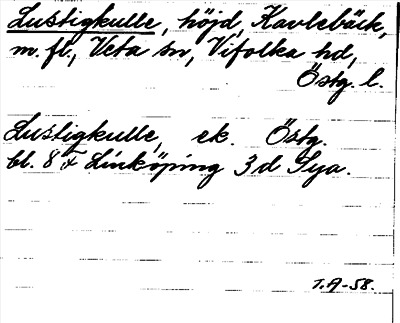 Lustigkulle, höjd, Kavlebäck,
m. fl., Veta sn, Vifolka hd,
Östg. l.
Lustigkulle, ek. Östg.
bl. 8 Linköping 3d Sya.
1.A-58.